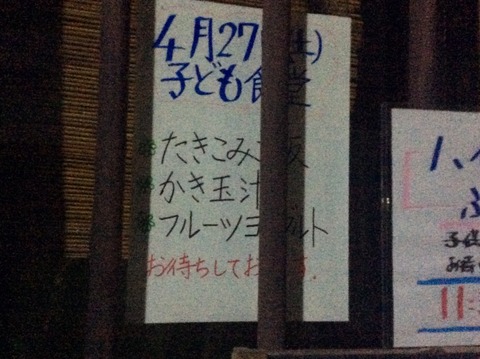 4月27(土)
子ども食堂
たきこみ飯
かき玉汁
フルーツヨグルト
お待ちしております。
子供
11: